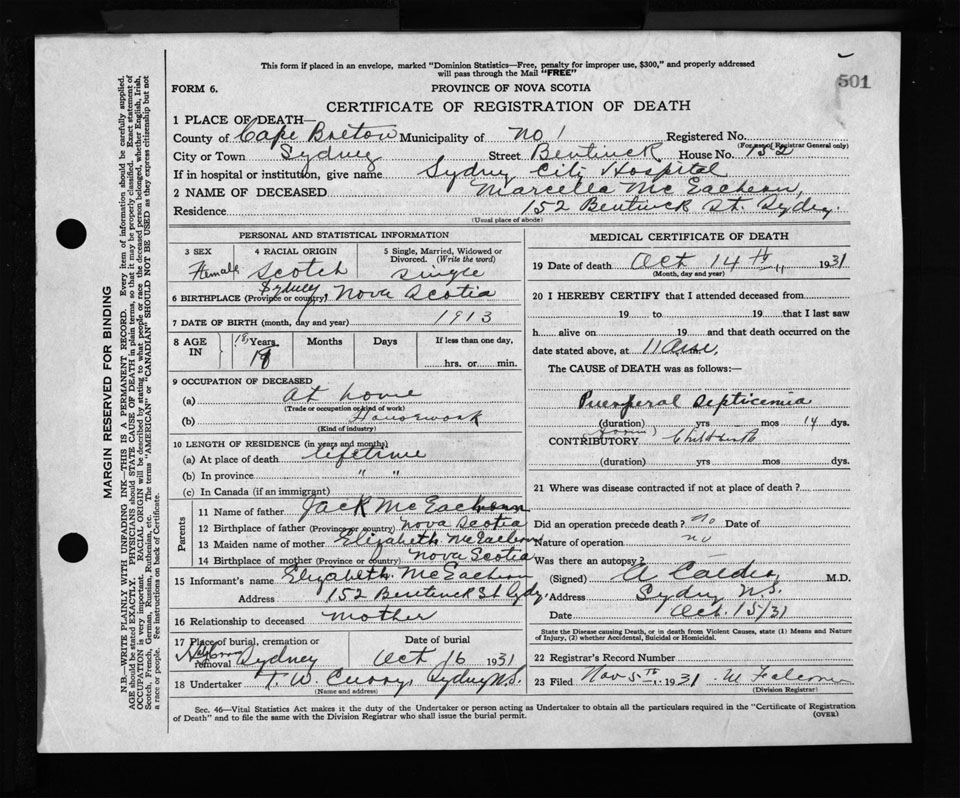 501
This form if placed in an envelope, marked "Dominion Statistics—Free, penalty for improper use, $300," and properly addressed
will pass through the Mail "FREE"
FORM 6.
PROVINCE OF NOVA SCOTIA
CERTIFICATE OF REGISTRATION OF DEATH
1 PLACE OF DEATH—
County of Cape Breton Municipality of No 1 Registered No.
(For use of Registrar General only)
City or Town Sydney Street Bentinck House No. 152
If in hospital or institution, give name Sydney City Hospital
2 NAME OF DECEASED Marcella McEachern,
Residence 152 Bentinck St. Sydney.
(Usual place of abode)
PERSONAL AND STATISTICAL INFORMATION
3 SEX 4 RACIAL ORIGIN 5 Single, Married, Widowed or
Divorced. (Write the word)
Female Scotch Single
6 BIRTHPLACE (Province or country) Sydney, Nova Scotia
7 DATE OF BIRTH (month, day and year) 1913
8 AGE IN Years Months Days If less than one day,
18
hrs. or min.
9 OCCUPATION OF DECEASED
(a) At home
(Trade or occupation or kind of work)
(b) Housework
(Kind of industry)
10 LENGTH OF RESIDENCE (in years and months)
(a) At place of death lifetime
(b) In province " "
(c) In Canada (if an immigrant)
Parents
11 Name of father Jack McEachern
12 Birthplace of father (Province or country) Nova Scotia
13 Maiden name of mother Elizabeth McEachern
14 Birthplace of mother (Province or country) Nova Scotia
15 Informant's name Elizabeth McEachern
Address 152 Bentinck St Sydney
16 Relationship to deceased mother
17 Place of burial, cremation or
removal Sydney
Date of burial
Oct 16 1931
18 Undertaker T. W. Curry, Sydney N.S.
(Name and address)
MEDICAL CERTIFICATE OF DEATH
19 Date of death Oct 14th 1931
(Month, day and year)
20 I HEREBY CERTIFY that I attended deceased from
19 to 19 that I last saw
h alive on 19 and that death occurred on the
date stated above, at 11
The CAUSE of DEATH was as follows:—
Puerperal Septicemia
(duration) yrs mos 14 dys.
CONTRIBUTORY Childbirth
(duration) yrs mos dys.
21 Where was disease contracted if not at place of death?
Did an operation precede death? No Date of
Nature of operation no
Was there an autopsy?
(Signed) A Calder M.D.
Address Sydney N.S.
Date Oct. 15/31
State the Disease causing Death, or in death from Violent Causes, state (1) Means and Nature
of Injury, (2) whether Accidental, Suicidal or Homicidal.
22 Registrar's Record Number
23 Filed Nov 5th 1931 M
(Division Registrar)
Sec. 46—Vital Statistics Act makes it the duty of the Undertaker or person acting as Undertaker to obtain all the particulars required in the "Certificate of Registration
of Death" and to file the same with the Division Registrar who shall issue the burial permit.
(OVER)
MARGIN RESERVED FOR BINDING
N.B.—WRITE PLAINLY WITH UNFADING INK—THIS IS A PERMANENT RECORD. Every item of information should be carefully supplied.
AGE should be stated EXACTLY. PHYSICIANS should STATE CAUSE OF DEATH in plain terms, so that it may be properly classified. Exact statement of
OCCUPATION is very important. RACIAL ORIGIN will be described by stating to what people or race the deceased person belonged, whether English, Irish,
Scotch, French, German, Russian, Ruthenian, etc. The terms "AMERICAN" or "CANADIAN" SHOULD NOT BE USED as they express citizenship but not
a race or people. See instructions on back of Certificate.